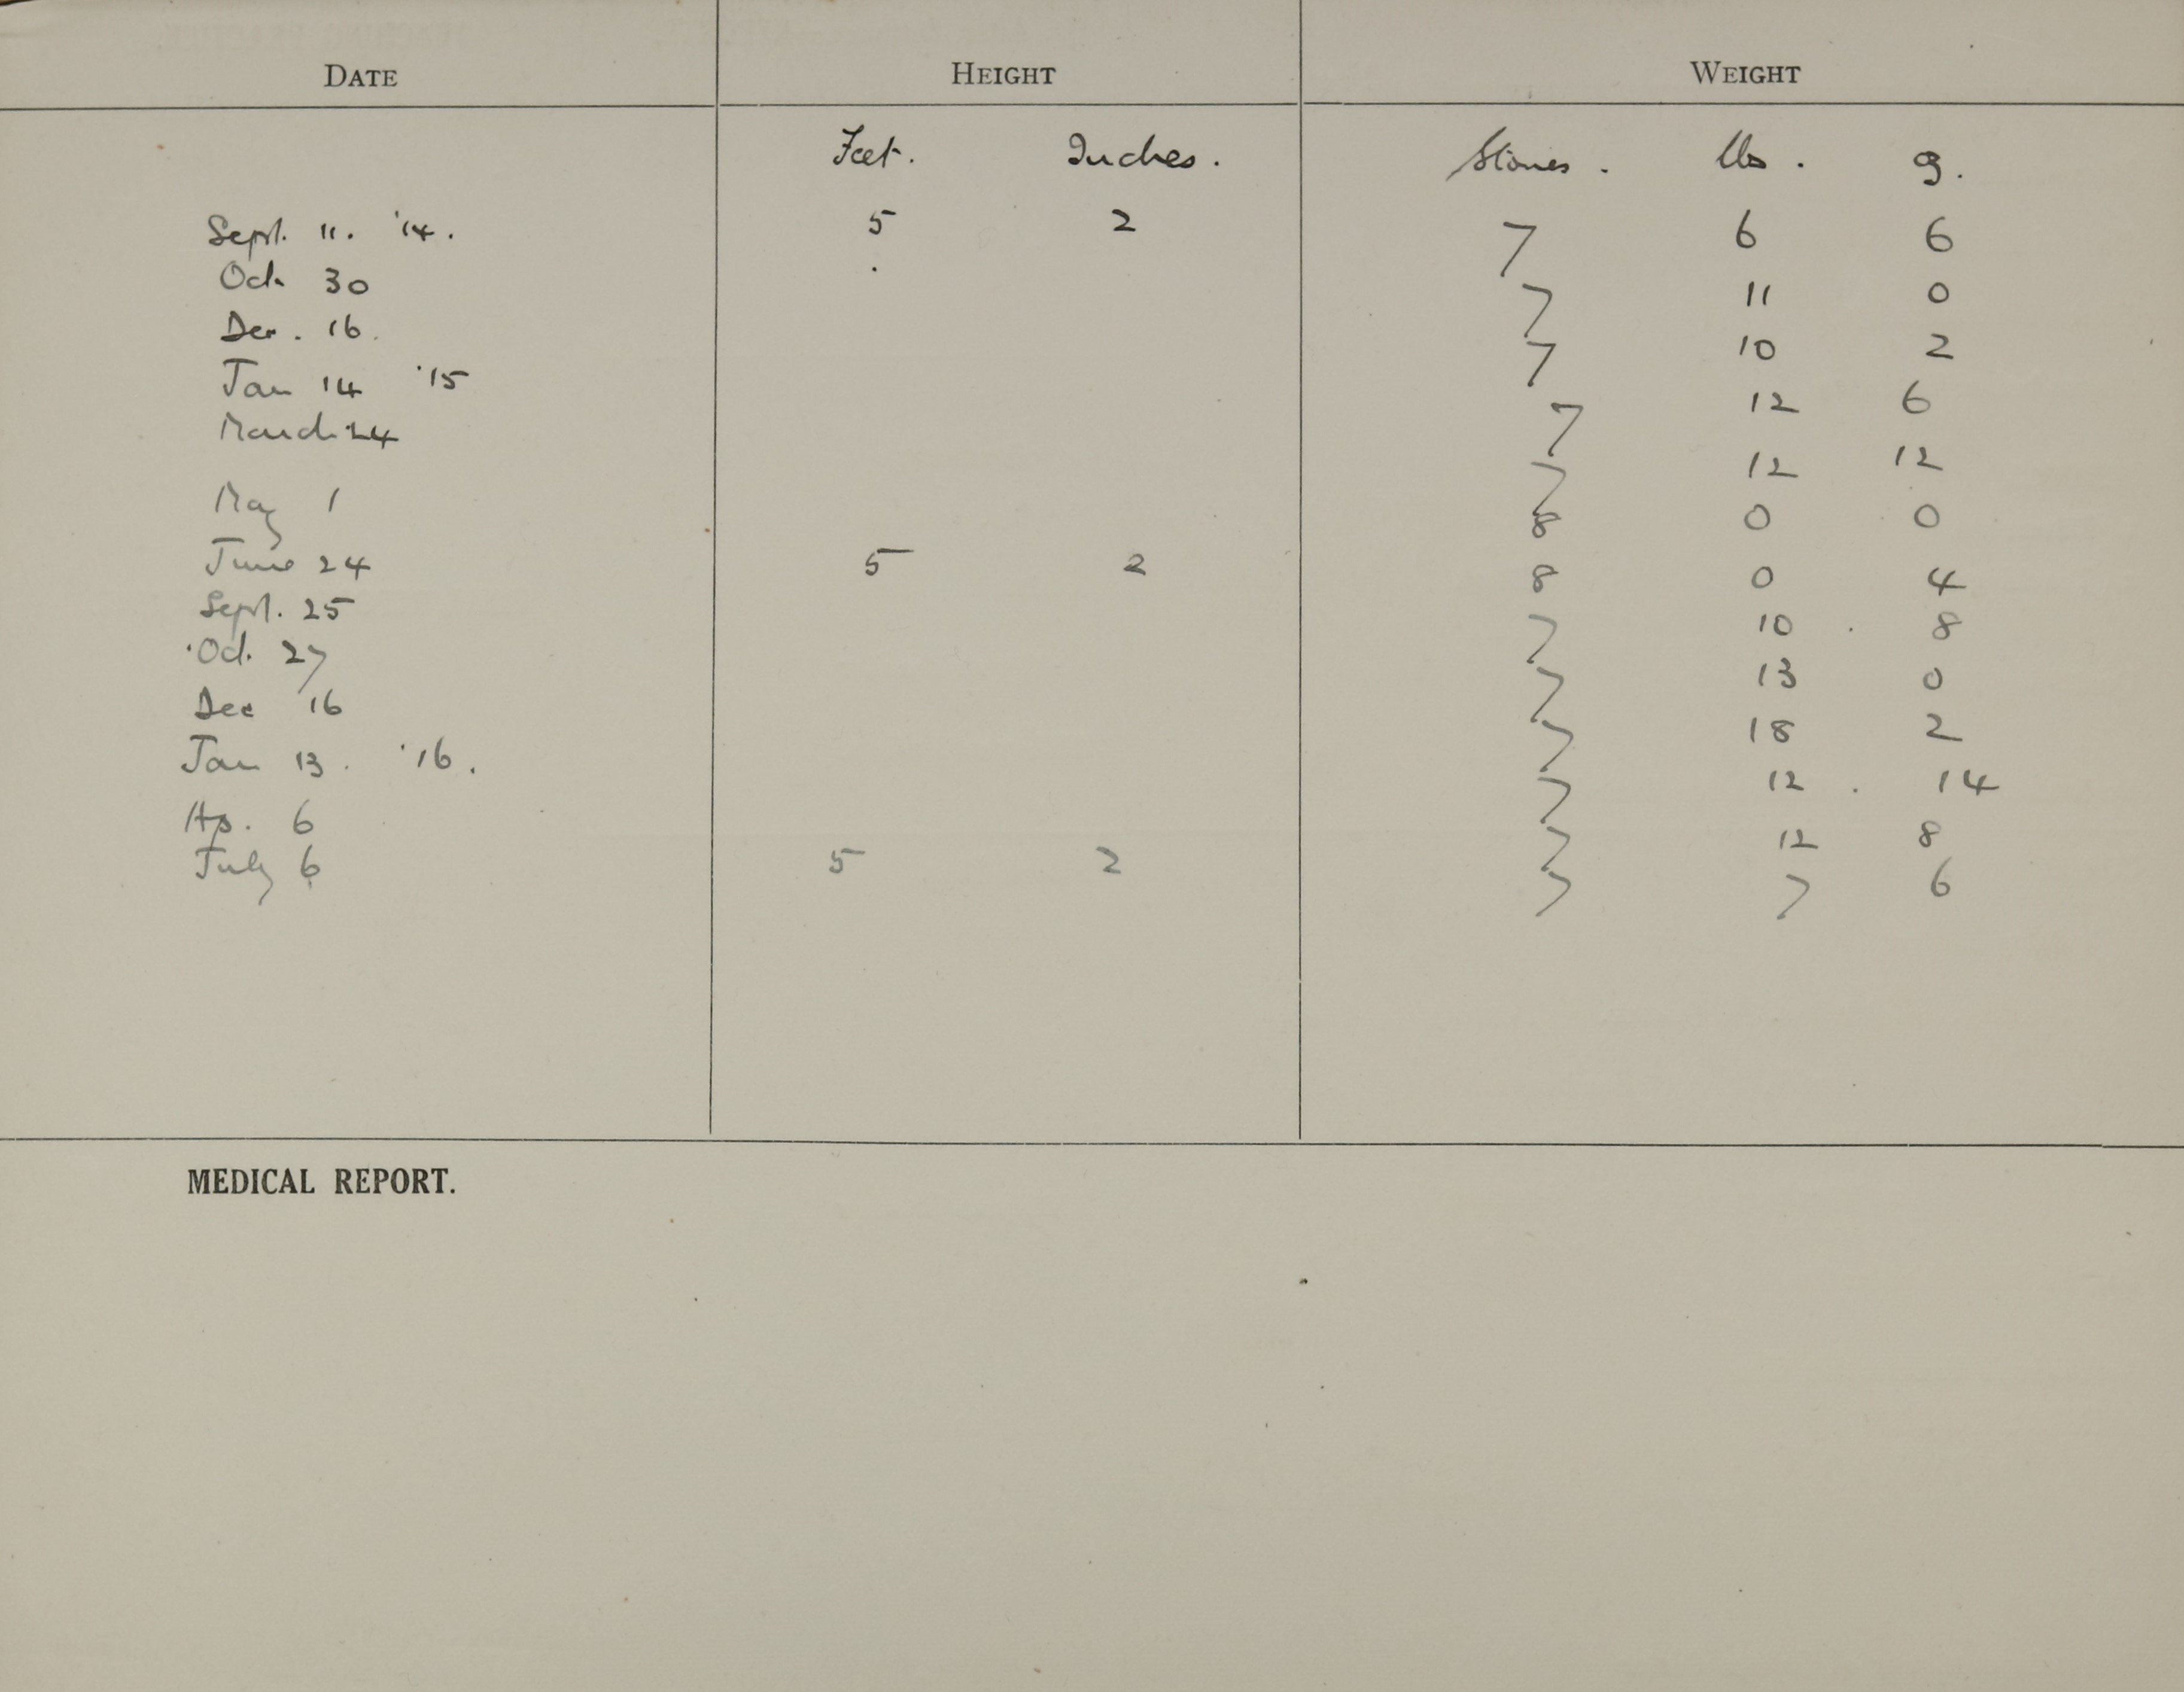 DATE HEIGHT WEIGHT
Feet. Inches. Stones. lbs. 
Sept. 11. '14. 5 2 7 6 6
Oct. 30 7 11 0
Dec. 16. 7 10 2
Jan 14 '15 7 12 6
March 24 7 12 12
May 1 8 0 0
June 24 5 2 8 0 4
Sept. 25 7 10 8
Oct. 27 7 13 0
Dec 16 7 18 2
Jan 13. '16. 7 12 14
Ap. 6 7 12 8
July 6 5 2 7 7 6
MEDICAL REPORT.